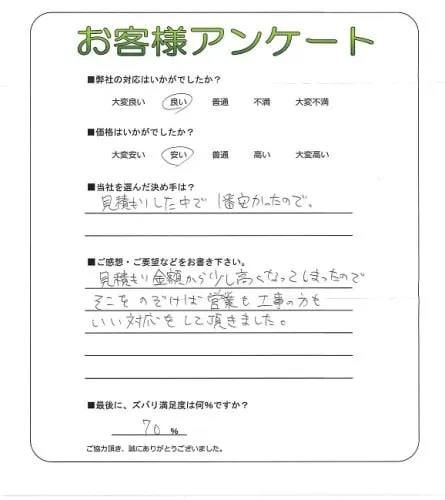 お客様アンケート
■弊社の対応はいかがでしたか？
大変良い 良い 普通 不満 大変不満
■価格はいかがでしたか？
大変安い 安い 普通 高い 大変高い
■当社を選んだ決め手は？
見積もりした中で1番安かったので。
■ご感想・ご要望などをお書き下さい。
見積もり金額から少し高くなってしまったので
そこをのぞけば営業も工事の方も
いい対応をして頂きました。
■最後に、ズバリ満足度は何％ですか？
70 %
ご協力頂き、誠にありがとうございました。